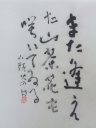 また逢え
た山茶花も
咲いてゐる
山頭火